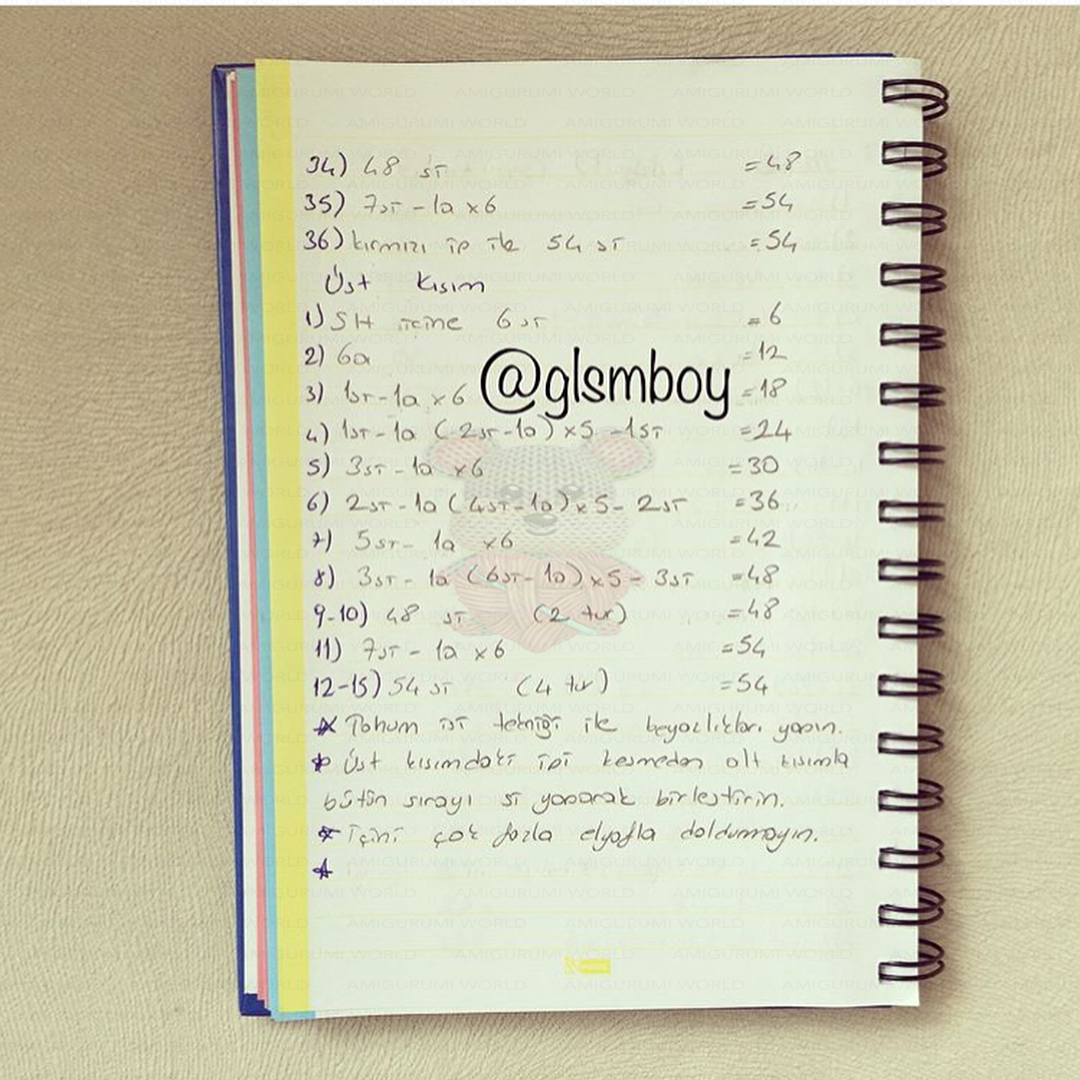 34) 48 sı = 48
35) 7sı - 1a x6 = 54
36) kırmızı ip ile 54 sı = 54
Üst kısım
1) SH içine 6 sı = 6
2) 6a = 12
3) 1sı - 1a x 6 = 18
@glsmboy
4) 1sı - 1a (2sı - 1a) x 5 - 1sı = 24
5) 3sı - 1a x6 = 30
6) 2sı - 1a (4sı - 1a) x 5 - 2sı = 36
7) 5sı - 1a x6 = 42
8) 3sı - 1a (6sı - 1a) x 5 - 3sı = 48
9-10) 48 sı (2 tur) = 48
11) 7sı - 1a x6 = 54
12-15) 54 sı (4 tur) = 54
* Tohum işi tekniği ile beyazlıkları yapın.
* Üst kısımdaki ipi kesmeden alt kısımla
bütün sırayı sı yaparak birleştirin.
* İçini çok fazla elyafla doldurmayın.
*
AMIGURUMI WORLD